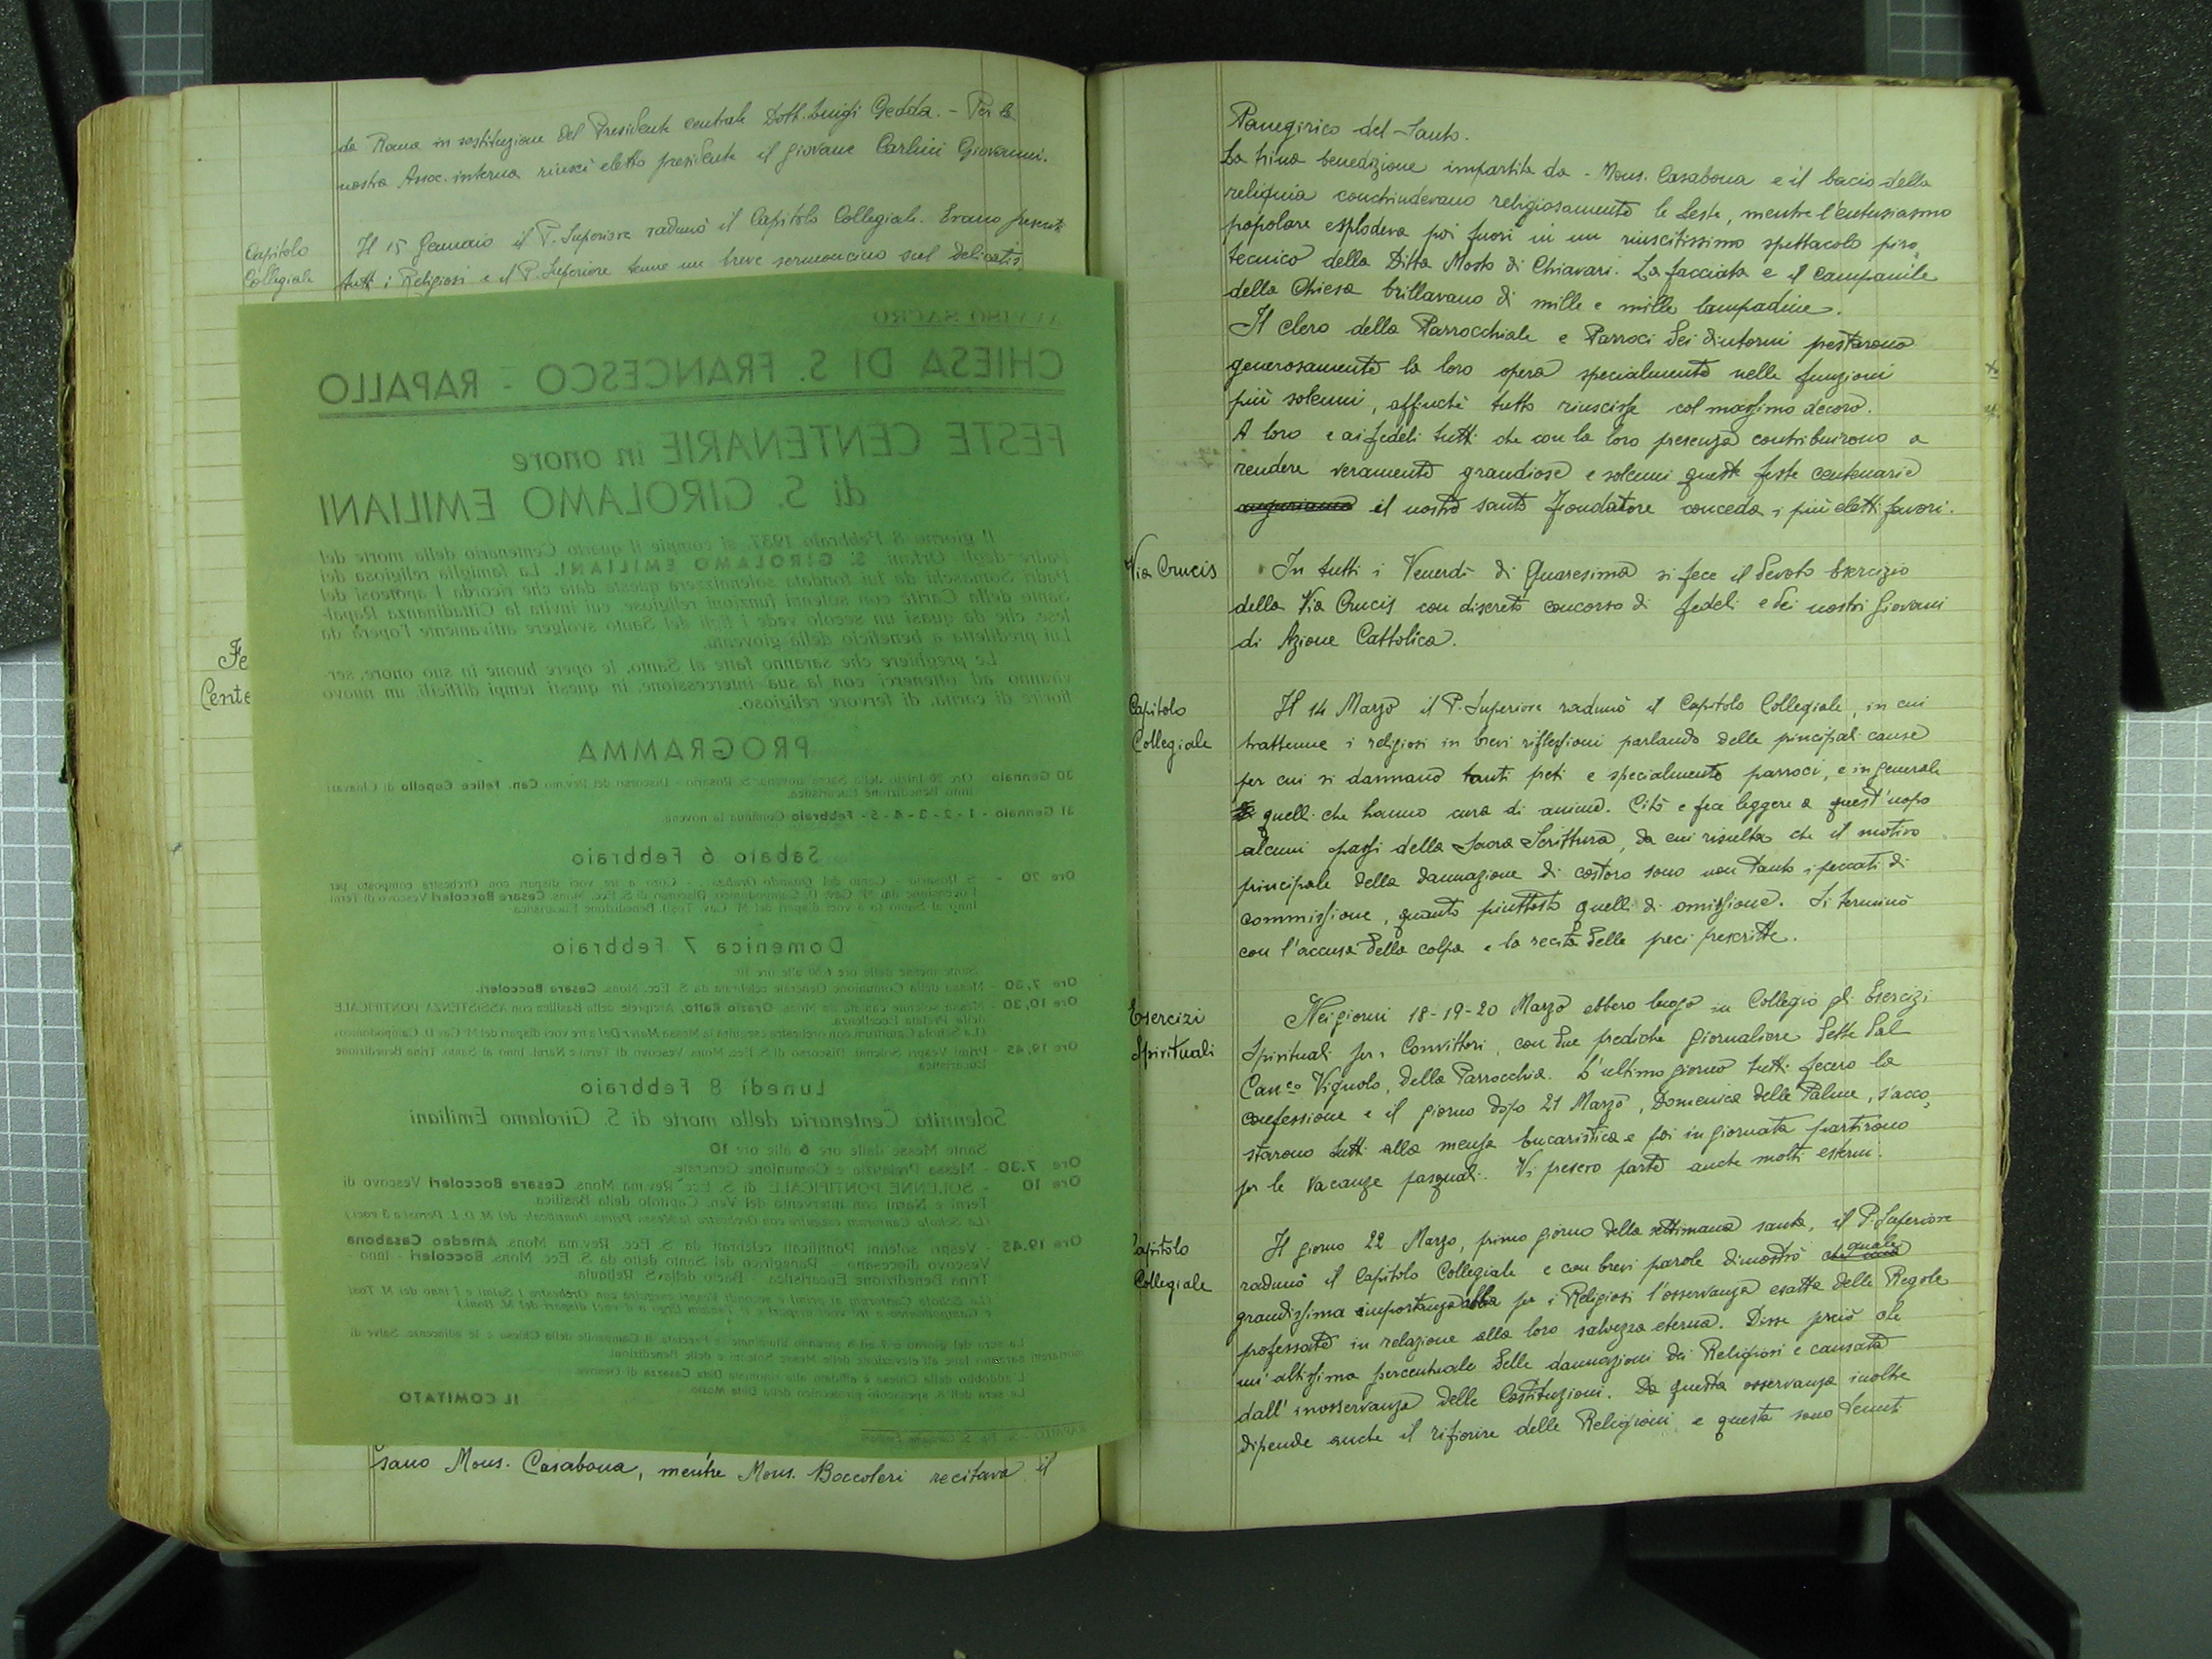 da Roma in sostituzione del Presidente centrale Dott. Luigi Gedda. - Per la
nostra Assoc. interna riuscì eletto presidente il giovane Carlini Giovanni.
Capitolo
Collegiale
Il 15 Gennaio il P. Superiore radunò il Capitolo Collegiale. Erano presenti
tutti i Religiosi e il P. Superiore tenne un breve sermoncino sul
AVVISO SACRO
CHIESA DI S. FRANCESCO - RAPALLO
FESTE CENTENARIE in onore
di S. GIROLAMO EMILIANI
Il giorno 8 Febbraio 1937, si compie il quarto Centenario della morte del
Padre degli Orfani S. GIROLAMO EMILIANI. La famiglia religiosa dei
Padri Somaschi da lui fondata solennizzerà questa data che ricorda l'apoteosi del
Santo della Carità con solenni funzioni religiose, cui invita la Cittadinanza Rapal-
lese che da quasi un secolo vede i figli del Santo svolgere attivamente l'opera da
Lui prediletta a beneficio della gioventù.
Le preghiere che saranno fatte al Santo, le opere buone in suo onore, ser-
viranno ad ottenerci con la sua intercessione, in questi tempi difficili, un nuovo
fiorire di carità, di fervore religioso.
PROGRAMMA
30 Gennaio Ore 20 Inizio della Sacra novena. S. Rosario - Discorso del Rev.mo Can. Felice Capello di Chiavari
Inno Benedizione Eucaristica.
31 Gennaio - 1 - 2 - 3 - 4 - 5 - Febbraio Continua la novena.
Sabato 6 Febbraio
Ore 20 - S. Rosario - Coro a tre voci dispari con Orchestra composto per
Discorso di S. Ecc. Mons. Cesare Boccoleri Vescovo di Terni
Inno al Santo (a 4 voci dispari del M. Cav. Tosi). Benedizione Eucaristica
Domenica 7 Febbraio
Sante messe dalle ore 6,30 alle ore 10
Ore 7,30 - Messa della Comunione Generale celebrata da S. Ecc. Mons. Cesare Boccoleri.
Ore 10,30 - Messa solenne cantata da Mons. Orazio Ratto, Arciprete della Basilica con ASSISTENZA PONTIFICALE
della Prelata Eccellenza.
Ore 19,45 - Primi Vespri Solenni. Discorso di S. Ecc. Mons. Vescovo di Terni e Narni. Inno al Santo. Trina Benedizione
Eucaristica
Lunedì 8 Febbraio
Solennità Centenaria della morte di S. Girolamo Emiliani
Sante Messe dalle ore 6 alle ore 10
Ore 7.30 - Messa Prelatizia e Comunione Generale.
Ore 10 - SOLENNE PONTIFICALE di S. Ecc. Rev.ma Mons. Cesare Boccoleri Vescovo di
Terni e Narni con intervento del Ven. Capitolo della Basilica
Ore 19.45 - Vespri solenni Pontificali celebrati da S. Ecc. Rev.ma Mons. Amedeo Casabona
Vescovo diocesano - Panegirico del Santo detto da S. Ecc. Mons. Boccoleri - Inno -
Trina Benedizione Eucaristica - Bacio della S. Reliquia.
IL COMITATO
Fe
Cente
sano Mons. Casabona, mentre Mons. Boccoleri recitava il
Panegirico del Santo.
La trina benedizione impartita da Mons. Casabona e il bacio della
reliquia conchiudevano religiosamente le feste, mentre l'entusiasmo
popolare esplodeva poi fuori in un riuscitissimo spettacolo piro
tecnico della Ditta Mosto di Chiavari. La facciata e il campanile
della Chiesa brillavano di mille e mille lampadine.
Il clero della Parrocchiale e Parroci dei dintorni prestarono
generosamente la loro opera specialmente nelle funzioni
più solenni, affinchè tutto riuscisse col massimo decoro.
A loro e ai fedeli tutti che con la loro presenza contribuirono a
rendere veramente grandiose e solenni queste feste centenarie
auguriamo il nostro santo Fondatore conceda i più eletti favori.
Via Crucis
In tutti i Venerdì di Quaresima si fece il devoto Esercizio
della Via Crucis con discreto concorso di fedeli e dei nostri Giovani
di Azione Cattolica.
Capitolo
Collegiale
Il 14 Marzo il P. Superiore radunò il Capitolo Collegiale, in cui
trattenne i religiosi in brevi riflessioni parlando delle principali cause
per cui si dannano tanti preti e specialmente parroci, e in generale
quelli che hanno cura di anime. Citò e fece leggere a quest'uopo
alcuni passi della Sacra Scrittura, da cui risulta che il motivo
principale della dannazione di costoro sono non tanto i peccati di
commissione, quanto piuttosto quelli di omissione. Si terminò
con l'accusa della colpa e la recita delle preci prescritte.
Esercizi
Spirituali
Nei giorni 18-19-20 Marzo ebbero luogo in Collegio gli Esercizi
Spirituali per i Convittori, con due prediche giornaliere dette dal
Can.co Vignolo, della Parrocchia. L'ultimo giorno tutti fecero la
confessione e il giorno dopo 21 Marzo, Domenica delle Palme, s'acco,
starono tutti alla mensa Eucaristica e poi in giornata partirono
per le vacanze pasquali. Vi presero parte anche molti esterni.
Capitolo
Collegiale
Il giorno 22 Marzo, primo giorno della settimana santa, il P. Superiore
radunò il Capitolo Collegiale e con brevi parole dimostrò quale
grandissima importanza abbia per i Religiosi l'osservanza esatta delle Regole
professate in relazione alla loro salvezza eterna. Disse perciò che
un'altissima percentuale delle dannazioni dei Religiosi è causata
dall'inosservanza delle Costituzioni. Da questa osservanza inoltre
dipende anche il rifiorire delle Religioni e questa sono tenuti